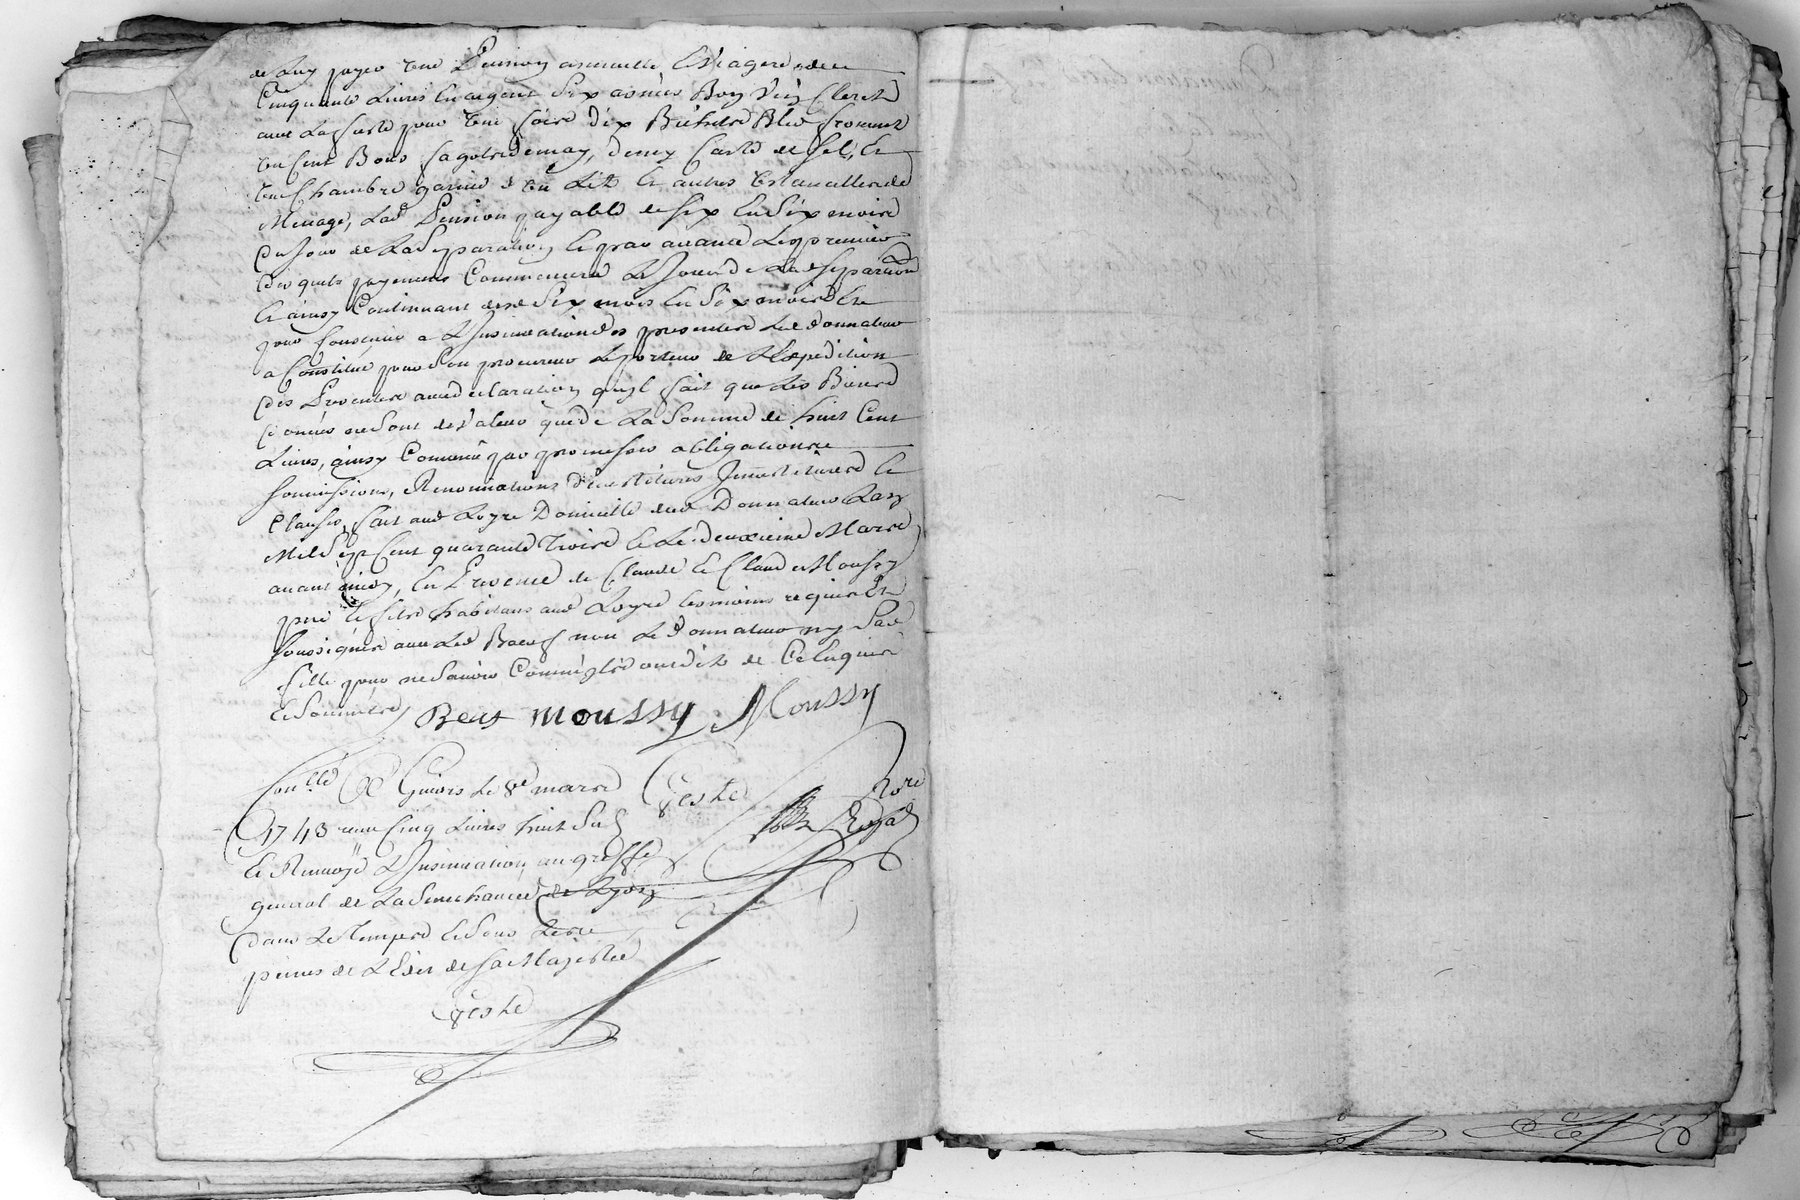 de luy payer une Pension annuelle & viagere de
Cinquante Livres en argent six asnées Bon Vin Cleret
avec La futte pour une fois dix Bichets Bled froment
un cent Bons fagots de may, demy Carte de sel, &
une Chambre garnie d'un Lit & autres Ustancilles de
Menage, Lad Pension payable de six En Six mois
Du Jour de La Separation & par avance Le premier
Desquels payements Commencera Le Jour de Lad Separation
& ainsy Continuant de Six mois En Six mois Et
pour L'insinuation des presentes Led donnateur
a Constitué pour son procureur Le porteur de L'Expedition
Des Presentes avec declaration qu'il fait que Les Biens
donnés ne sont de Valeur que de La Somme de huit Cent
Livres, ainsy Convenu par promesses obligations
soumissions, Renonciations devestitures Investitures &
Clauses, fait aud Loyre Domicille dud Donnateur L'an
Mil Sept Cent quarante trois & Le deuxieme Mars
avant midy, En Presence de Claude & Claude Moussy
pere & fils habitans aud Loyre temoins requis Et
soussignés avec Led Beuf non Le donnateur ny Sad
fille pour ne Sçavoir Comme ils ont dit de Ce Enquis
& Sommés Beuf moussy Moussy
Con.llé à Givors Le 8e mars
1743 reçu Cinq Livres huit Sols
& Renvoyé L'Insinuation au greffe
general de La Senechaussée de Lyon
dans Le temps & Sous Les
peines de L'Edit de Sa Majesté
Geste
Geste
Nore
Royal